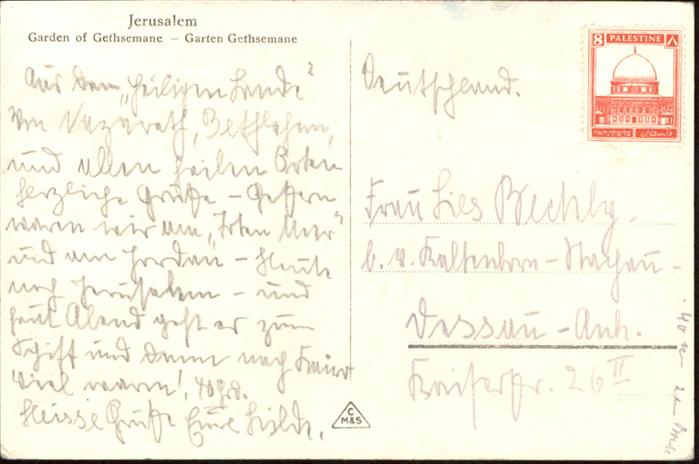 Jerusalem
Garden of Gethsemane – Garten Gethsemane
Aus dem „heiligen Lande"
von Nazareth, Bethlehem,
und allen heilen Orten
herzliche Grüße – Gestern
waren wir am „Toten Meer"
und am Jordan – Heute
noch Jerusalem – und
heut Abend geht es zum
Schiff und dann nach Kairo
viel warm! 40 Grd.
Heisse Grüße Eure Hilde.
C
M&S
8 PALESTINE ٨
פלשתינה א״י فلسطين
Deutschland.
Frau Lies
b. v. Kaltenborn-Stachau-
Dessau-Anh.
Kaiserstr. 26 II